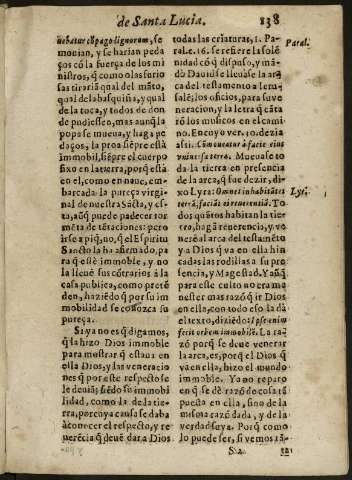 de Santa Lucia.
838
uebatur cõpago lignorum, se
mouian, y se harian peda-
ços cõ la fuerça de los mi
nistros, q̃ como olas furio
sas tirariã qual del mãto,
qual de la basquiña, y qual
de la toca, y todos de don
de pudiessen, mas aunq̃ la
popa se mueua, y haga pe
daços, la proa siẽpre està
immobil, siẽpre el cuerpo
fixo en la tierra, porq̃ està
en el, como en naue, em-
barcada la pureça virgi-
nal de nuestra Sãta, y es-
ta, aũq̃ puede padecer tor
mẽta de tẽtaciones: pero
irse a piq̃, no, q̃ el Espiritu
Sancto la ha afirmado, pa
ra q̃ estè immoble, y no
la lleuẽ sus cõtrarios à la
casa publica, como pretẽ
den, haziẽdo q̃ por su im
mobilidad se conozca su
pureça.
Si ya no es q̃ digamos,
q̃ la hizo Dios immoble
para mostrar q̃ estaua en
ella Dios, y las veneracio
nes q̃ por este respecto se
le deuiã; siẽdo su immobi
lidad, como la de la tie-
rra, por cuya causa se daba
à conocer el respecto, y re
uerẽcia q̃ deuẽ dar a Dios
todas las criaturas, 1. Pa-
ral. c. 16. se refiere la solẽ
nidad cõ q̃ dispuso, y mã-
dò Dauid se lleuase la arca
del testamento a Ieru-
salẽ; los oficios, para su ve
neracion, y la letra q̃ cãta
rõ los musicos en el cami
no. En cuyo ver. 30. dezia
assi. Cõmoueatur à facie eius
vniuersa terra. Mueuase to
da la tierra en presencia
de la arca, q̃ fue dezir, di-
xo Lyra: Omnes inhabitãtes
terrã, faciãt ei reuerentiã. To
dos quãtos habitan la tie-
rra, hagã reuerencia, y ve
nerẽ al arca del testamẽto
y a Dios q̃ va en ella hin
cadas las rodillas a su pre
sencia, y Magestad. Y aũq̃
para este culto no era me
nester mas razõ q̃ ir Dios
en ella, con todo eso la dà
el texto, diziẽdo: Ipse enim
fecit orbem immobilẽ. La ra-
zõ porque se deue venerar
la arca, es, porq̃ el Dios q̃
va en ella, hizo el mundo
immoble. Y a no reparo
en q̃ se dè razõ de cosa tã
puesta en ella, sino de la
misma razõ dada, y de la
verdad suya. Porq̃ como
lo puede ser, si vemos tã-
Paral.
Lyr.